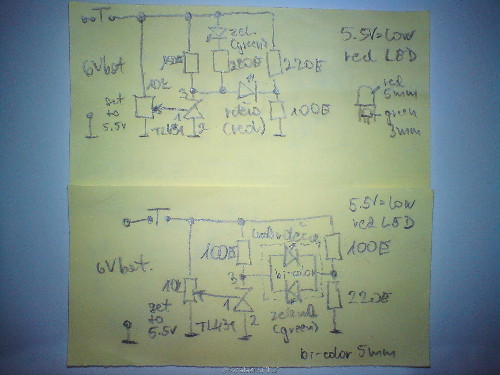 T
5.5V=low
red LED
zel.
(green)
6V bat
220E
10k
3
red
5mm
set
to
5.5V
1
2
TL431
(red)
100E
green
3mm
5.5V=low
red LED
T
100E
100E
6V bat.
3
bi-color
10k
1
220E
set
to
5.5V
TL431
2
(green)
bi-color 5mm